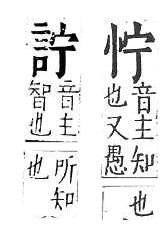 㤖
音主知
也又愚
也
詝
音主
智也
所知
也